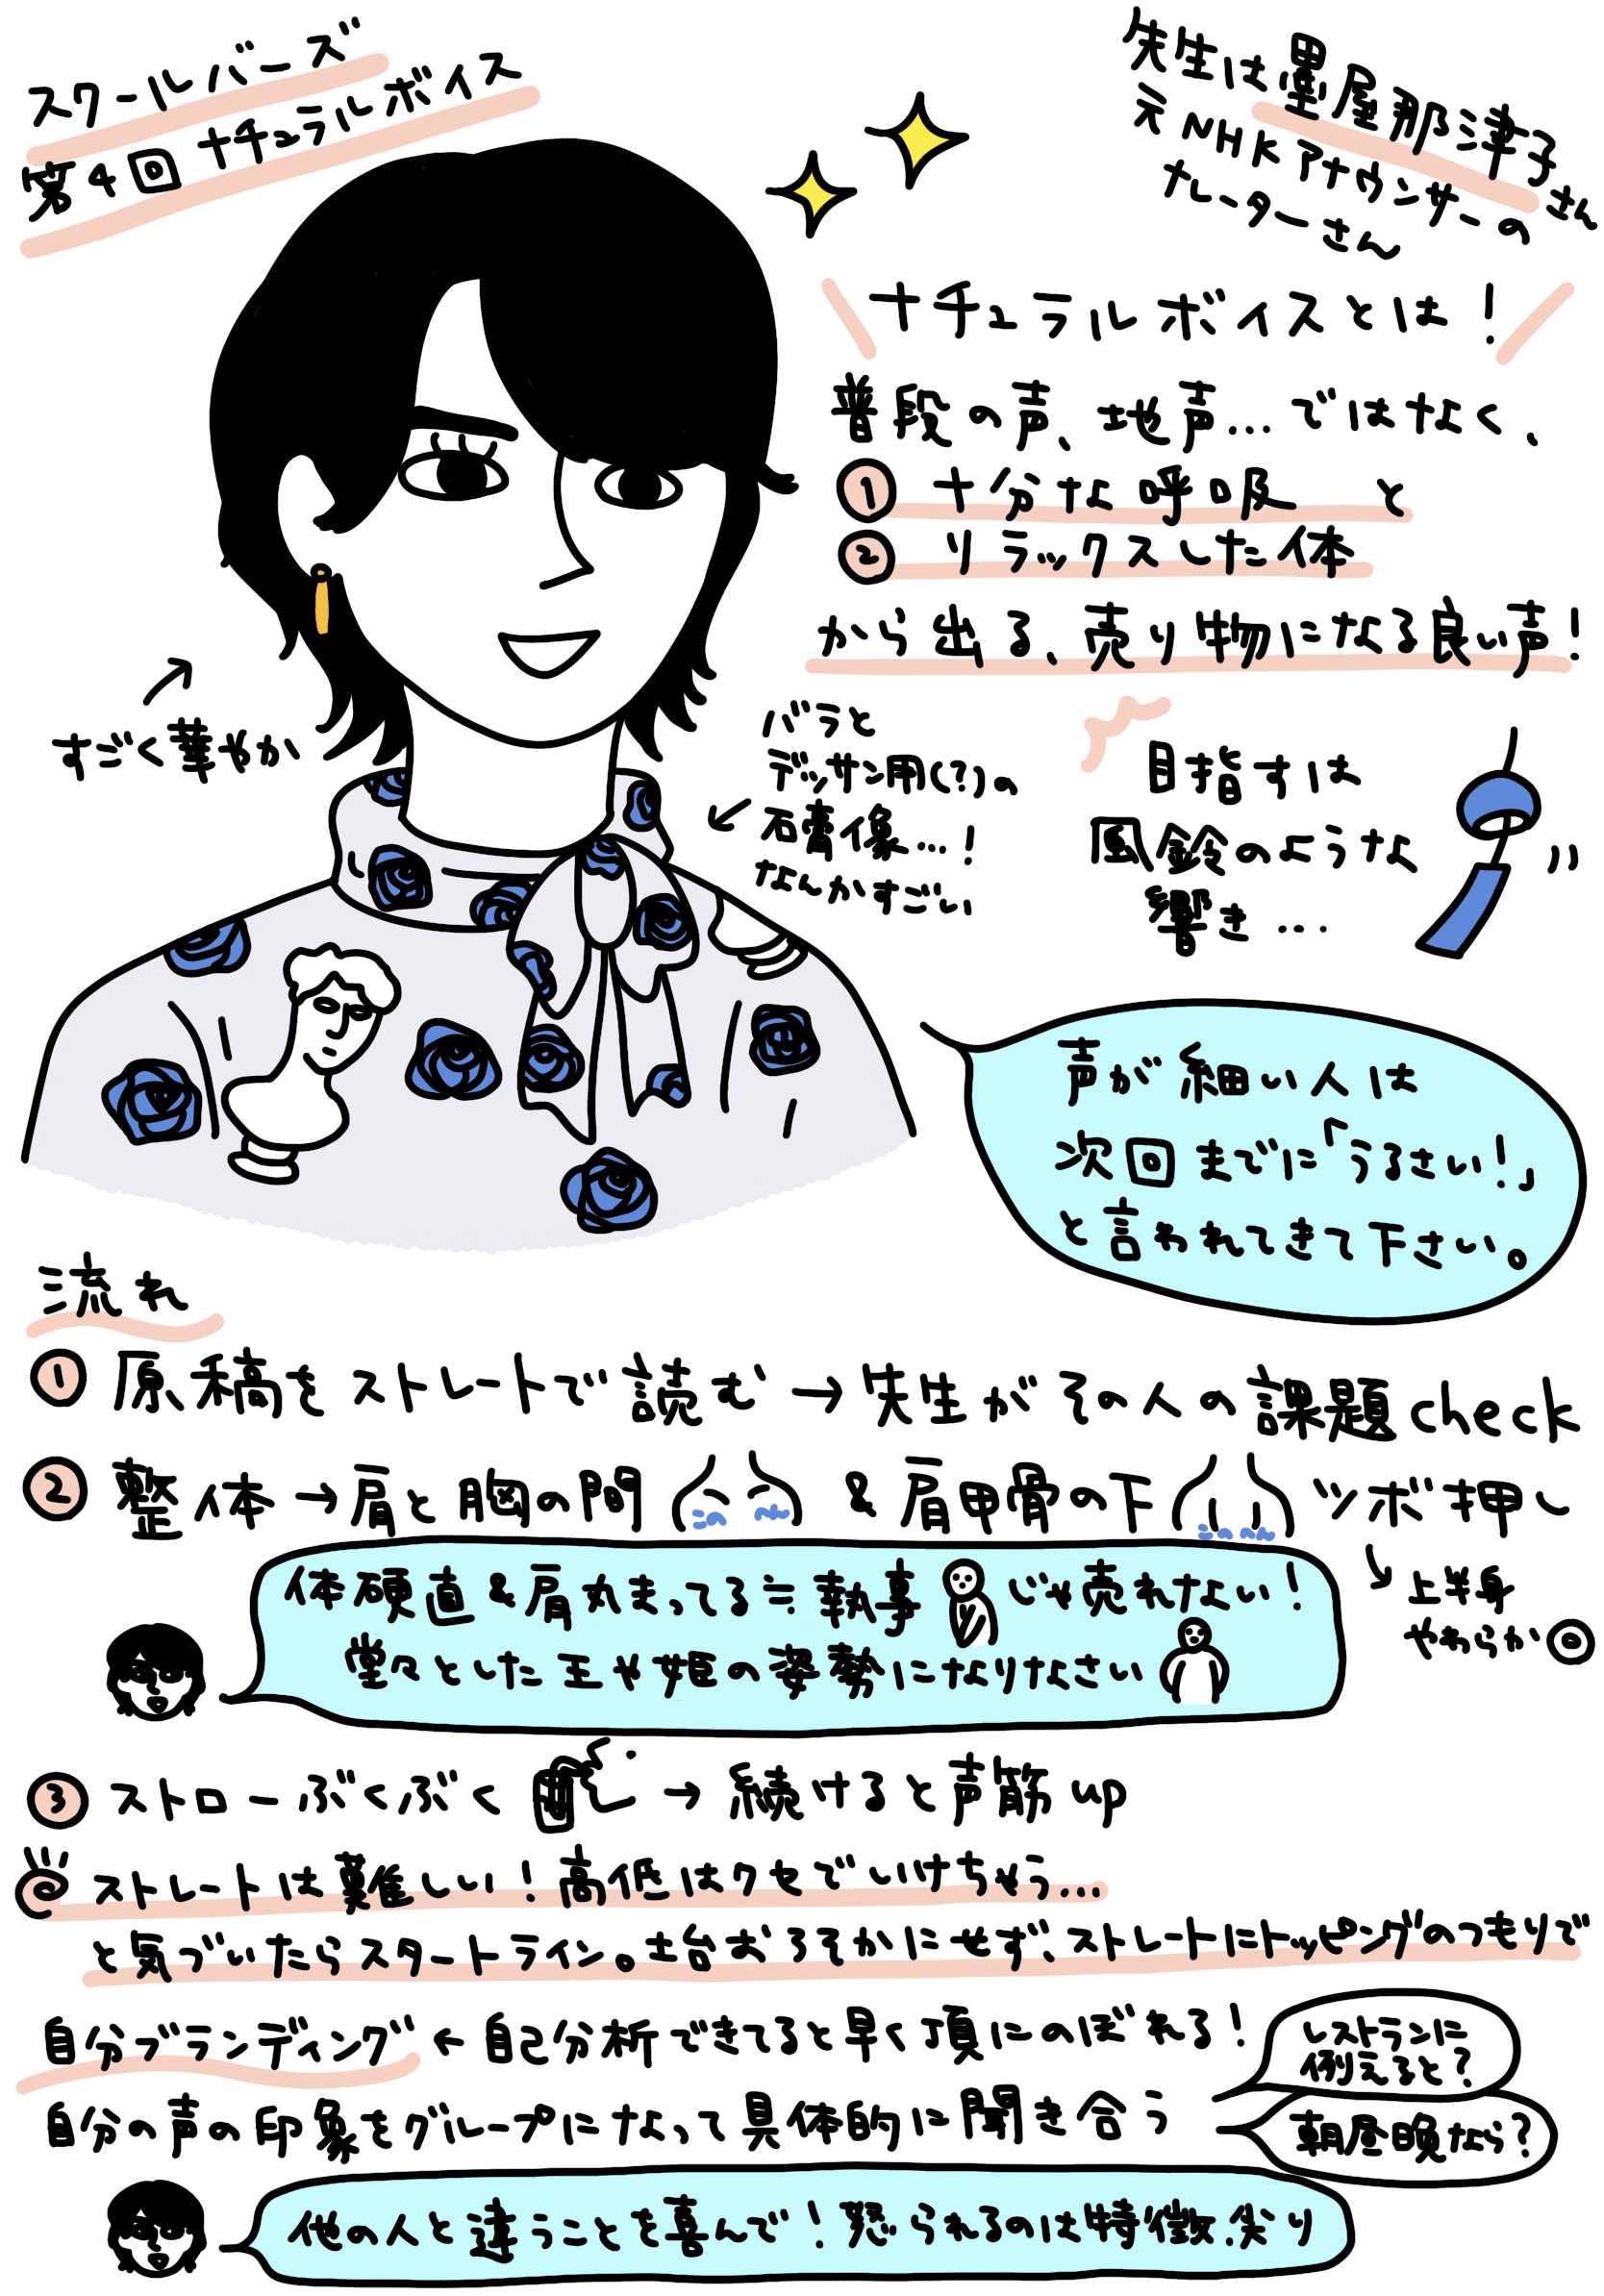 スクールバーズ
第4回 ナチュラルボイス
先生は墨屋那津子さん
元NHKアナウンサーの
ナレーターさん
ナチュラルボイスとは!
普段の声、地声…ではなく、
① 十分な呼吸 と
② リラックスした体
から出る、売り物になる良い声!
すごく華やか
バラと
デッサン用(?)の
石膏像…!
なんかすごい
目指すは
風鈴のような
響き…
声が細い人は
次回までに「うるさい!」
と言われてきて下さい。
流れ
① 原稿をストレートで読む→先生がその人の課題check
② 整体→肩と胸の間 & 肩甲骨の下 ツボ押し
上半身
やわらか◎
体硬直&肩丸まってる≒執事 じゃ売れない!
堂々とした王や姫の姿勢になりなさい
③ ストローぶくぶく → 続けると声筋up
ストレートは難しい!高低はクセでいけちゃう…
と気づいたらスタートライン。土台おろそかにせず、ストレートにトッピングのつもりで
自分ブランディング ← 自己分析できてると早く頂にのぼれる!
レストランに
例えると?
自分の声の印象をグループになって具体的に聞き合う
朝昼晩なら?
他の人と違うことを喜んで!怒られるのは特徴、尖り